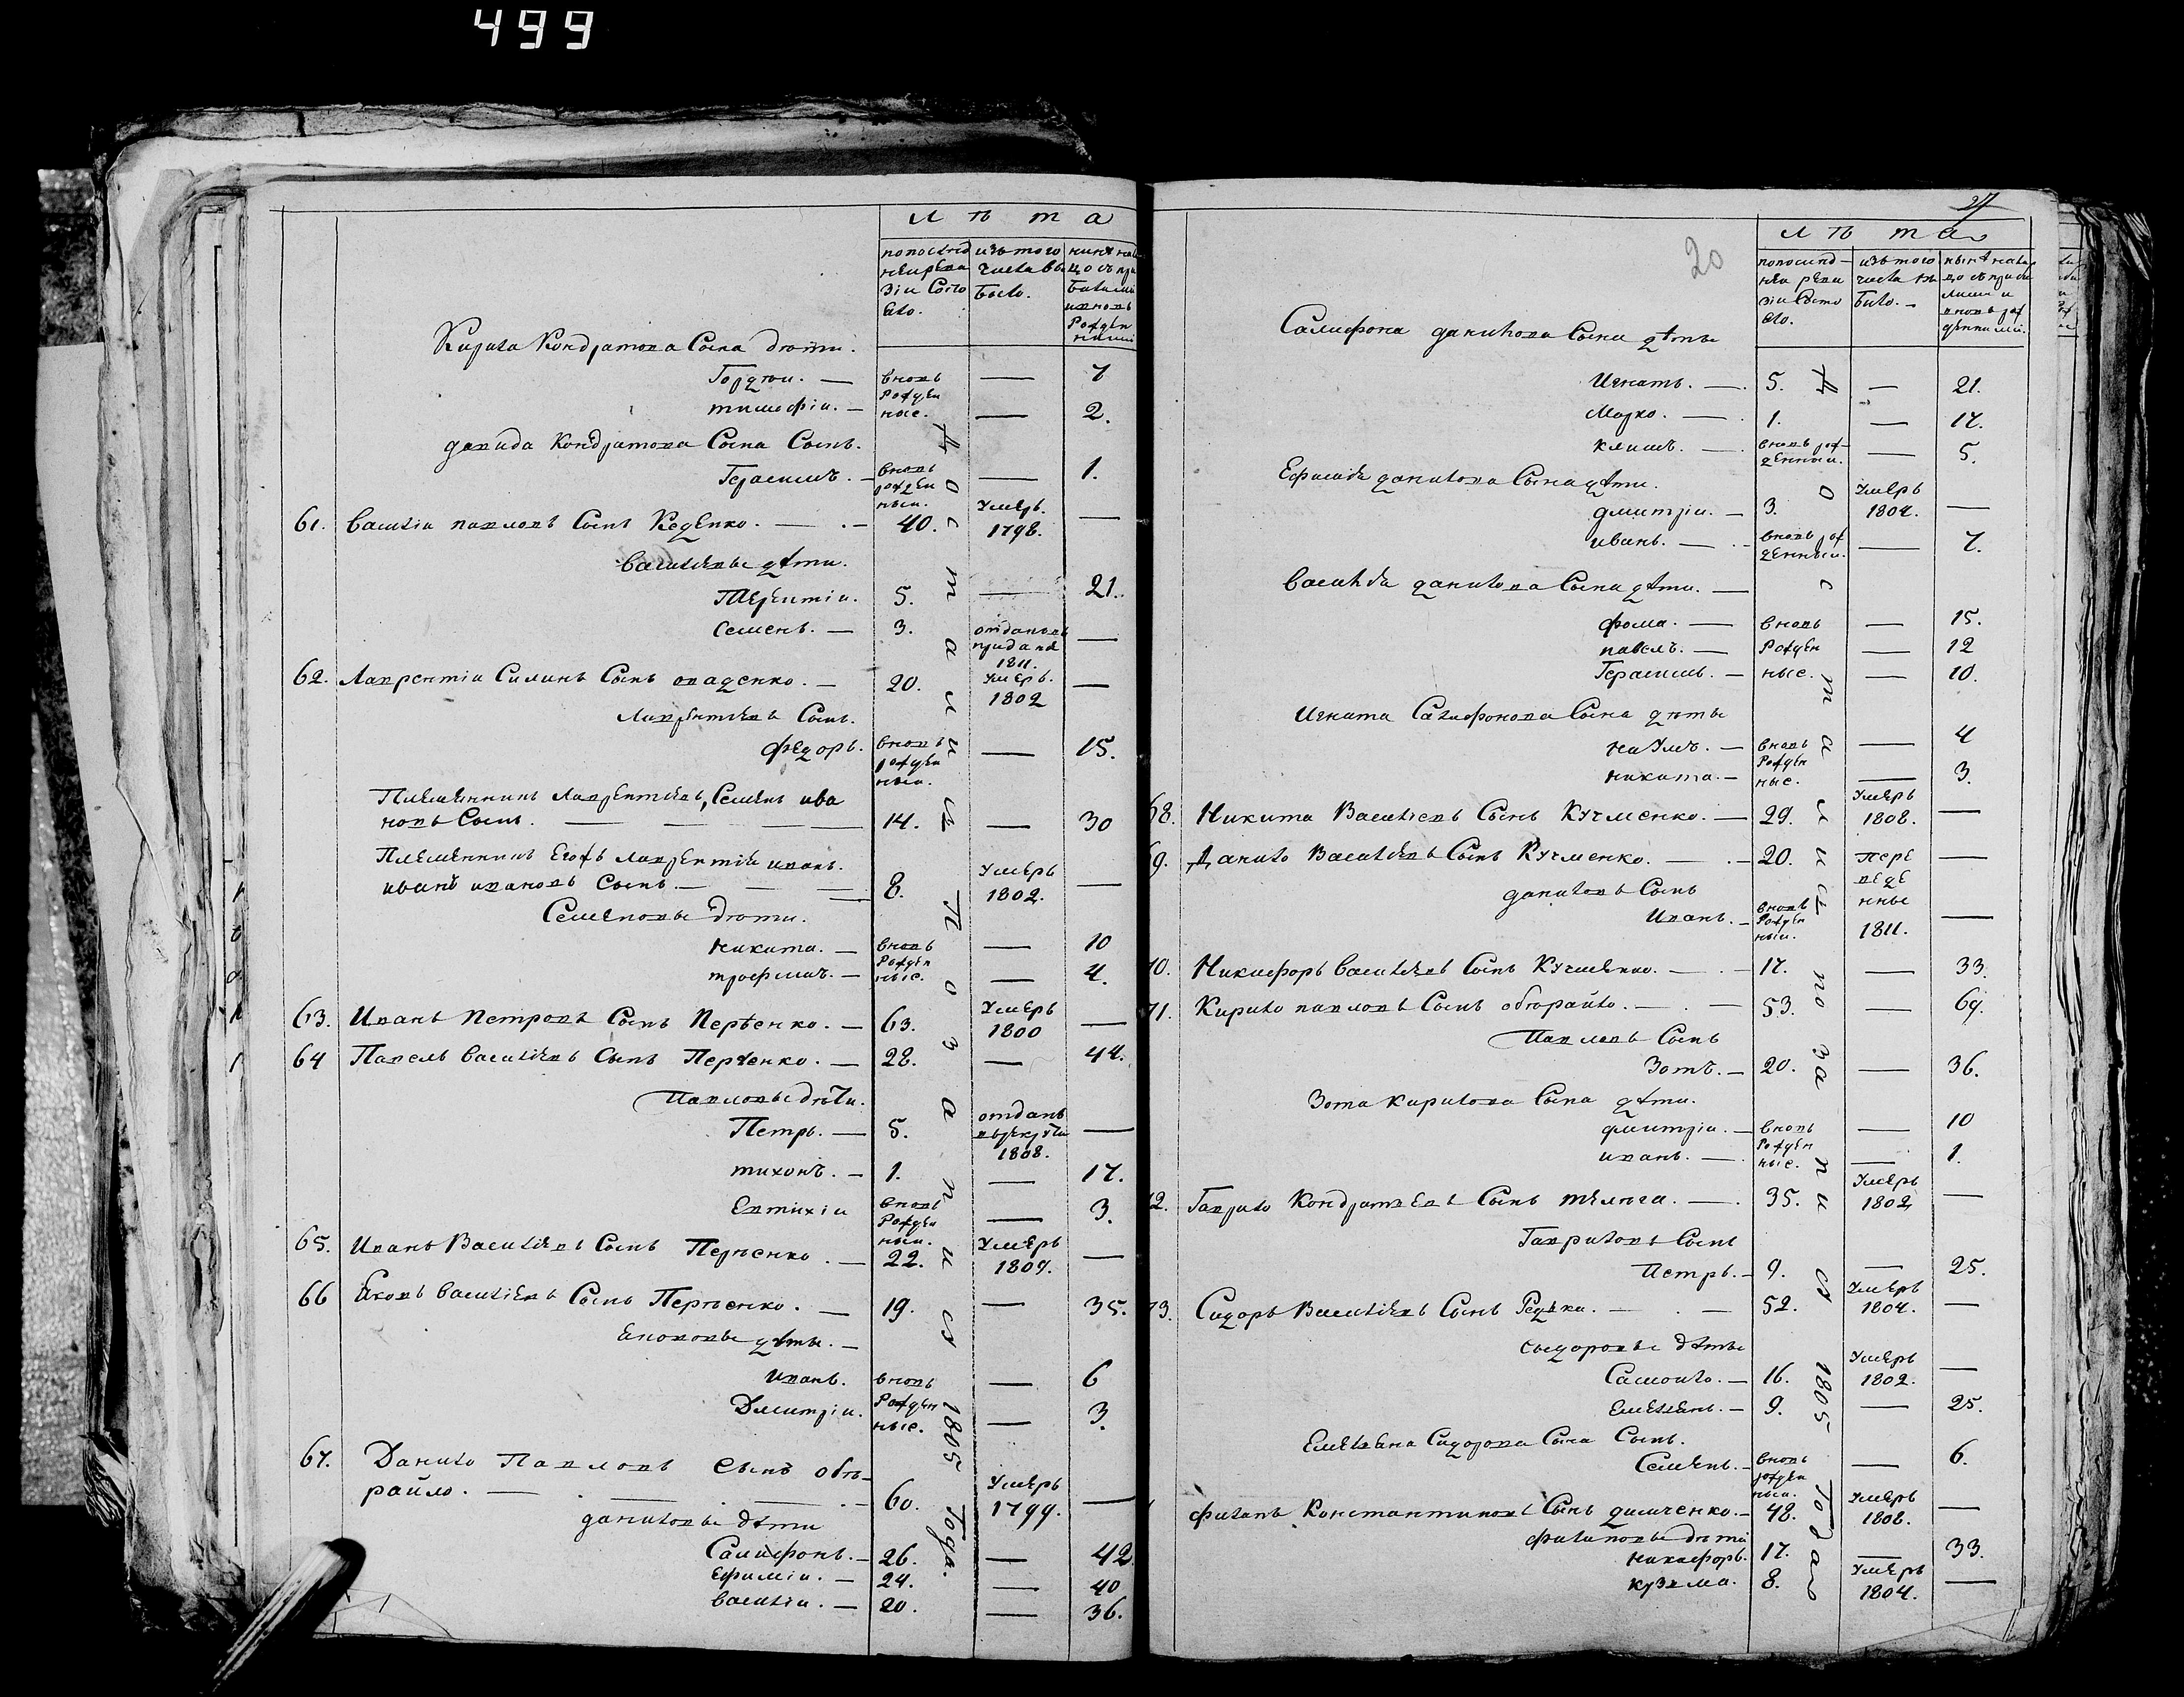 499
Л ѣ т а
по послед
ней реви
зіи состо
яло.
изъ того
числа вы
было.
Кирила Кондратова Сына дѣти.
Гордѣи. — вновь — 7
тимофіи. — рожден
ные. — 2.
давида Кондратова Сына Сынъ.
Герасимъ. — вновь
рожден
ныи. — 1.
61. Василіи павловъ Сынъ Реденко. — 40. Умеръ.
1798. —
Василіевы дѣти.
Терентіи. 5. — 21.
Семенъ. — 3. отданъ
1811. —
62. Лаврентіи Силинъ Сынъ — 20. Умеръ.
1802 —
Лаврентіевъ Сынъ.
федоръ. вновь
рожден
ныи. — 15.
Племенникъ Лаврентіевъ, Семенъ ива
новъ Сынъ. — 14. — 30
Племенникъ Егожъ Лаврентія иванъ.
ивановъ Сынъ. — 8. Умеръ
1802. —
Семеновы дѣти.
никита. — вновь — 10
трофимъ. — рожден
ные. — 4.
63. Иванъ Петровъ Сынъ — 63. Умеръ
1800 —
64 Павелъ Василіевъ Сынъ — 28. — 44.
Павловы дѣти.
Петръ. — 5. отданъ
въ рекруты
1808. —
тихонъ. — 1. — 17.
Евтихіи вновь
рожден
ныи. — 3.
65. Иванъ Василіевъ Сынъ — 22. Умеръ
1807. —
66 Яковъ Василіевъ Сынъ — 19. — 35.
Якововы дѣти. —
иванъ. вновь — 6
Дмитріи. рожден
ные. — 3.
67. Данило Павловъ Сынъ обѣ-
райло. — 60. Умеръ
1799. —
даниловы дѣти
Самифонъ. — 26. — 42
Ефиміи. — 24. — 40
василіи. — 20. — 36.
По ста н и е по з а п и с 1805 Года.
27
20
Л ѣ т а
по послед-
ней реви
зіи состо
яло.
изъ того
числа вы
было. —
Самифона данилова Сына дѣты
Игнатъ. — 5. — 21.
Марко. — 1. — 17.
климъ. — вновь рож-
денныи. — 5.
Ефимія данилова Сына дѣти.
дмитріи. — 3. Умеръ
1804. —
иванъ. — вновь рож
денныи. — 7.
Василія данилова Сына дѣти. —
фома. — вновь — 15.
павелъ. — рожден — 12
Герасимъ. — ные. — 10.
Игната Самифонова Сына дѣты
наумъ. — вновь — 4
никита. — рожден
ные. — 3.
68. Никита Василіевъ Сынъ Кучменко. — 29. Умеръ
1808. —
69. Данило Василіевъ Сынъ Кучменко. — 20. пере
веде
нные —
даниловъ Сынъ
Иванъ. — вновь
рожден
ныи. 1811. —
70. Никифоръ Василіевъ Сынъ Кучменко. — 17. — 33.
71. Кирило павловъ Сынъ обѣрайло. — 53. — 69.
Павловъ Сынъ
Зотъ. — 20. — 36.
Зота Кирилова Сына дѣти.
дмитріи. — вновь — 10
иванъ. — рожден
ные. — 1.
72. Гаврило Кондратіевъ Сынъ — 35. Умеръ
1802 —
Гавриловъ Сынъ
Петръ. — 9. — 25.
73. Сидоръ Василіевъ Сынъ Редька. — 52. Умеръ
1804. —
Сыдоровы дѣты
Самойло. — 16. Умеръ
1802. —
Емелянъ. — 9. — 25.
Емеляна Сидорова Сына Сынъ.
Семенъ. — вновь
рожден
ныи. — 6.
филипъ Константиновъ Сынъ димченко. — 48. Умеръ
1808. —
филиповы дѣти
никифоръ. 17. — 33.
кузма. 8. Умеръ
1804. —
1805 Года